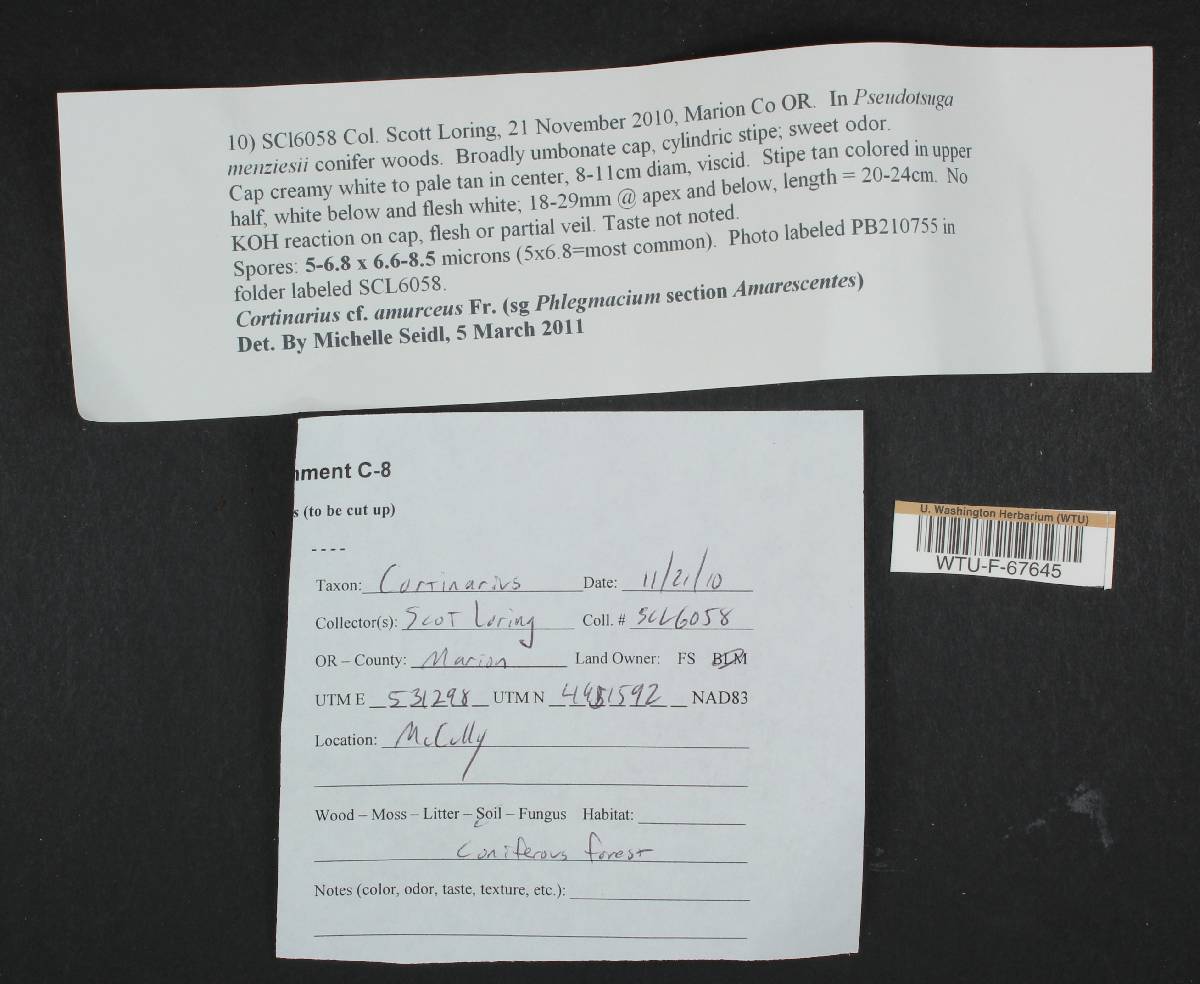 10) SCl6058 Col. Scott Loring, 21 November 2010, Marion Co OR. In Pseudotsuga
menziesii conifer woods. Broadly umbonate cap, cylindric stipe; sweet odor.
Cap creamy white to pale tan in center, 8-11cm diam, viscid. Stipe tan colored in upper
half, white below and flesh white; 18-29mm @ apex and below, length = 20-24cm. No
KOH reaction on cap, flesh or partial veil. Taste not noted.
Spores: 5-6.8 x 6.6-8.5 microns (5x6.8=most common). Photo labeled PB210755 in
folder labeled SCL6058.
Cortinarius cf. amurceus Fr. (sg Phlegmacium section Amarescentes)
Det. By Michelle Seidl, 5 March 2011
ment C-8
s (to be cut up)
----
Taxon: Cortinarius Date: 11/21/10
Collector(s): Scot Loring Coll. # SCL6058
OR – County: Marion Land Owner: FS BLM
UTM E 531298 UTM N NAD83
Location: McCully
Wood – Moss – Litter – Soil – Fungus Habitat:
Coniferous forest
Notes (color, odor, taste, texture, etc.):
U. Washington Herbarium (WTU)
WTU-F-67645